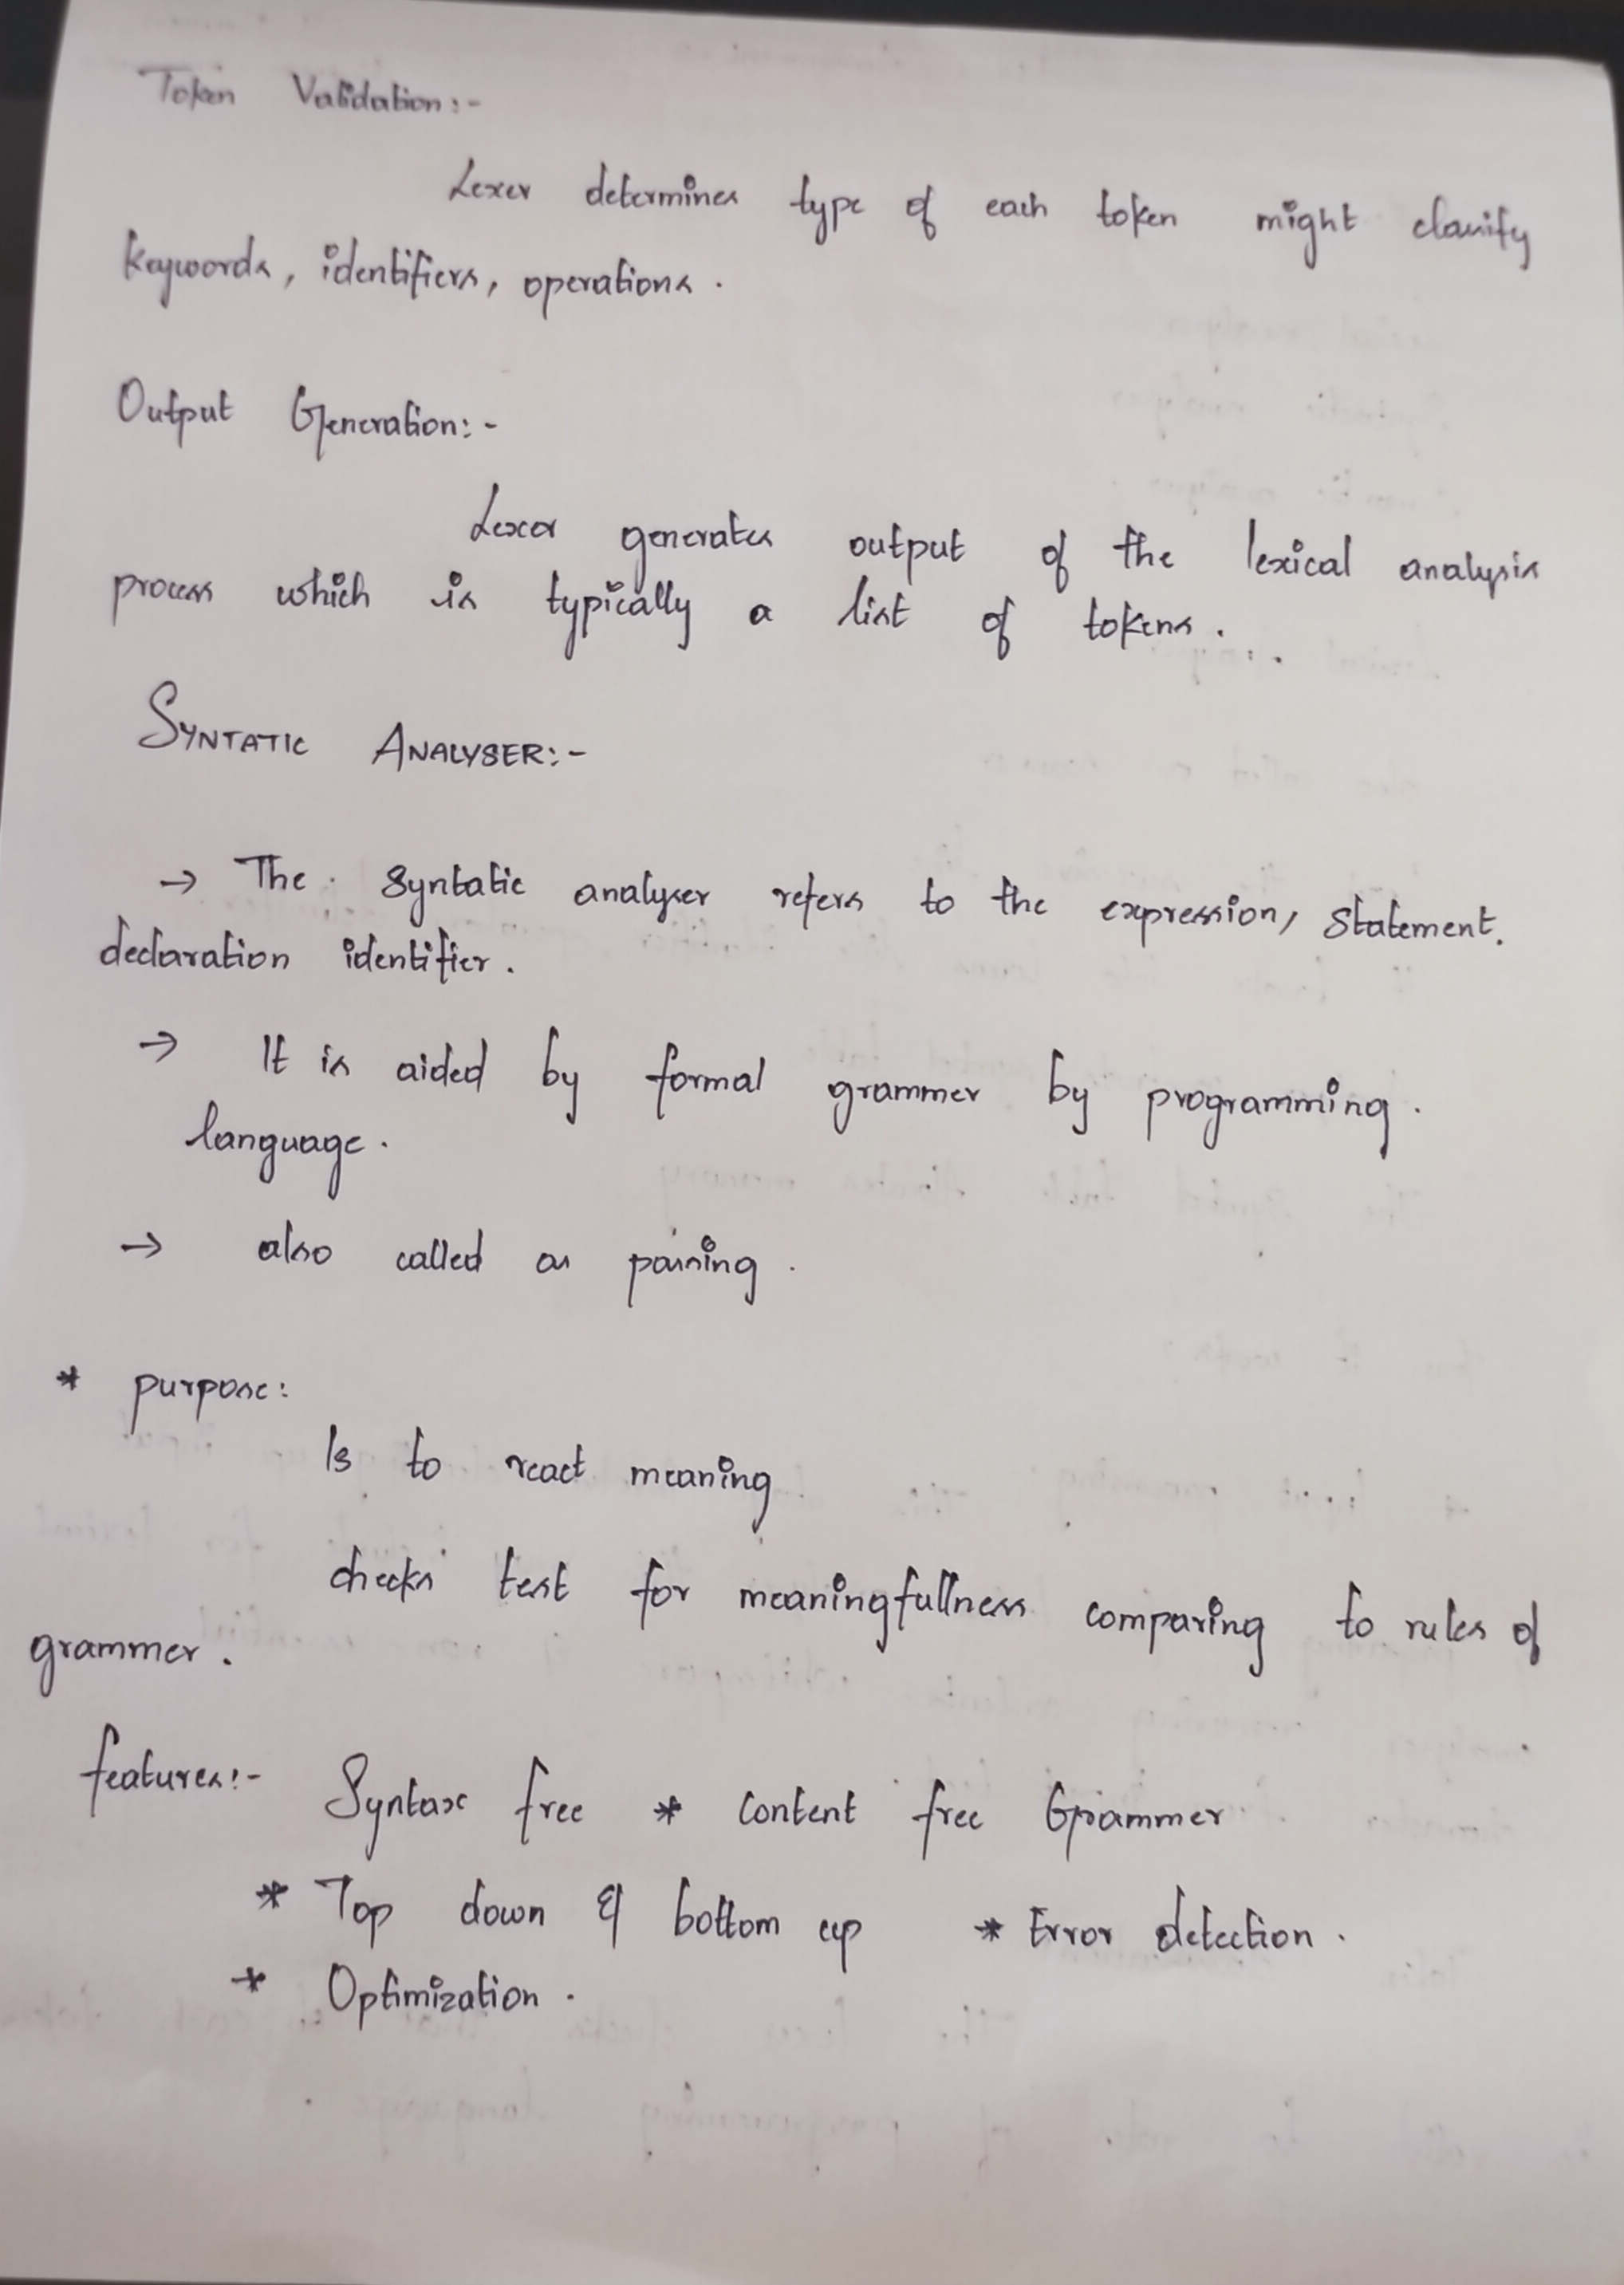 Token Validation:-
Lexer determines type of each token might classify
keywords, identifiers, operations.
Output Generation:-
Lexer generates output of the lexical analysis
process which is typically a list of tokens.
SYNTATIC ANALYSER:-
→ The syntatic analyser refers to the expression, statement.
declaration identifier.
→ It is aided by formal grammer by programming.
language.
→ also called as parsing.
* purpose:
Is to react meaning
checks test for meaningfullness comparing to rules of
grammer.
features:- Syntax free * Content free Grammer
* Top down & bottom up * Error detection.
* Optimization.